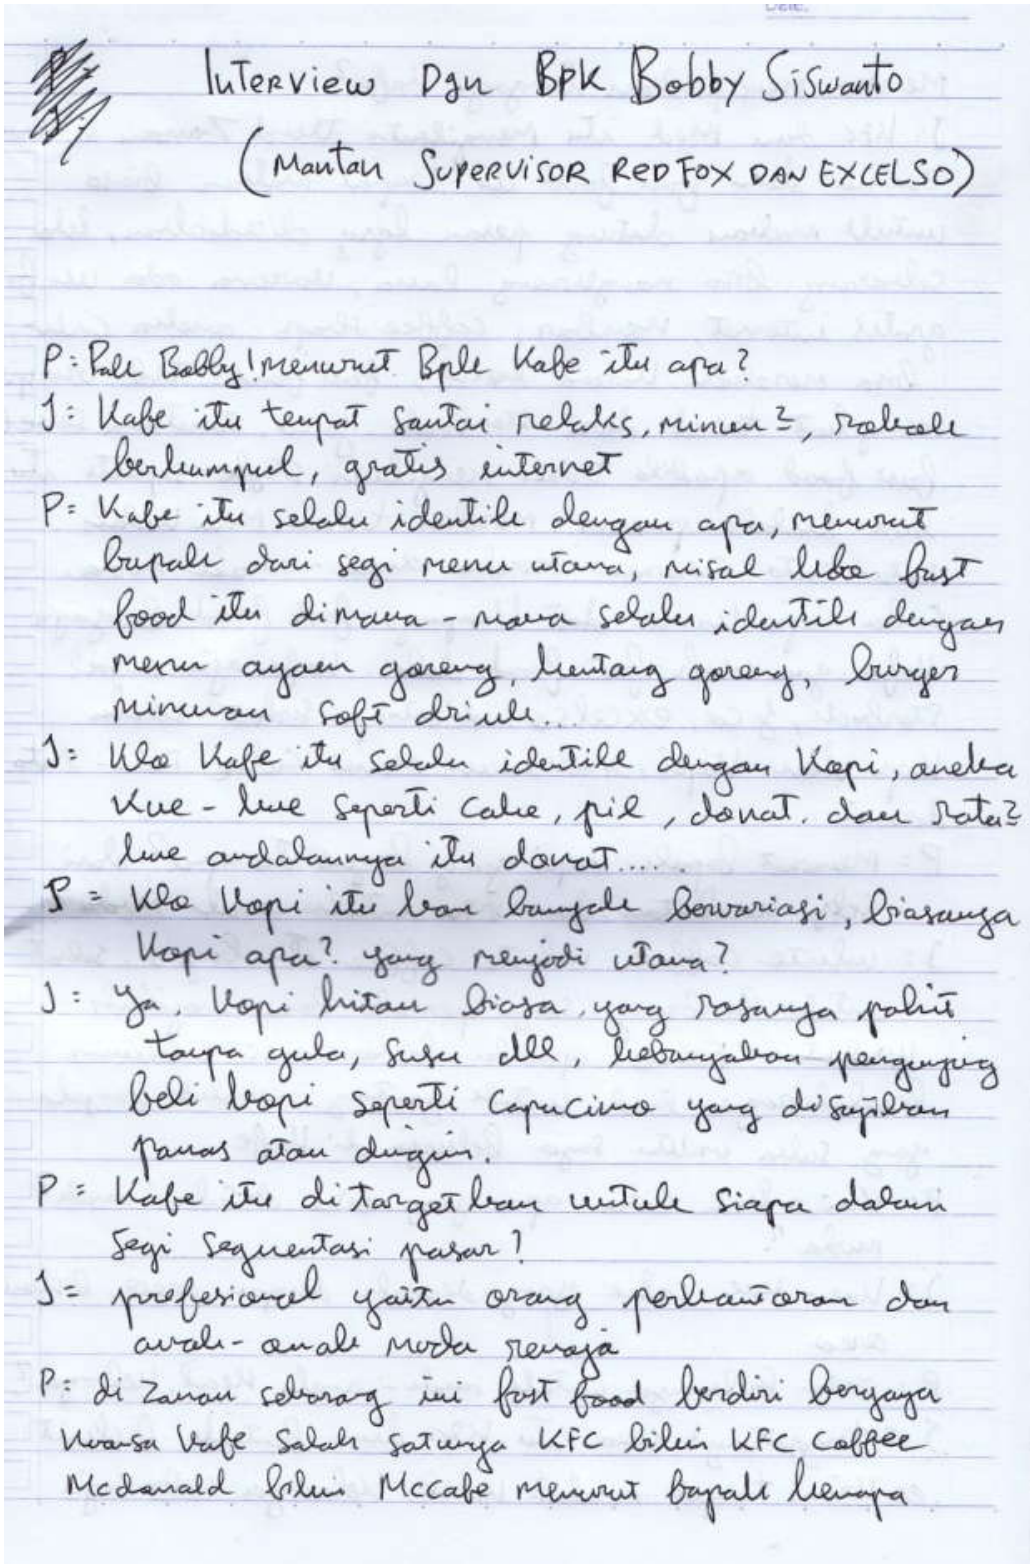 Date:
Interview Dgn Bpk Bobby Siswanto
(Mantan SUPERVISOR RED FOX DAN EXCELSO)
P: Pak Bobby! menurut Bpk Kafe itu apa?
J: Kafe itu tempat santai relaks, minum², rokok
berkumpul, gratis internet
P: Kafe itu selalu identik dengan apa, menurut
bapak dari segi menu utama, misal kalo fast
food itu dimana-mana selalu identik dengan
menu ayam goreng, kentang goreng, burger
minuman soft drink..
J: Klo Kafe itu selalu identik dengan Kopi, aneka
Kue-kue seperti cake, pie, donat. dan rata²
kue andalannya itu donat......
P = Klo Kopi itu kan banyak bervariasi, biasanya
Kopi apa? yang menjadi utama?
J: Ya, Kopi hitam biasa, yang rasanya pahit
tanpa gula, susu dll, kebanyakan pengunjung
beli kopi seperti Capucimo yang disajikan
panas atau dingin.
P = Kafe itu ditargetkan untuk siapa dalam
segi segmentasi pasar?
J = profesional yaitu orang perkantoran dan
anak-anak muda remaja
P: di zaman sekarang ini fast food berdiri bergaya
nuansa Kafe salah satunya KFC bikin KFC Coffee
Mcdonald bikin McCafe menurut bapak kenapa